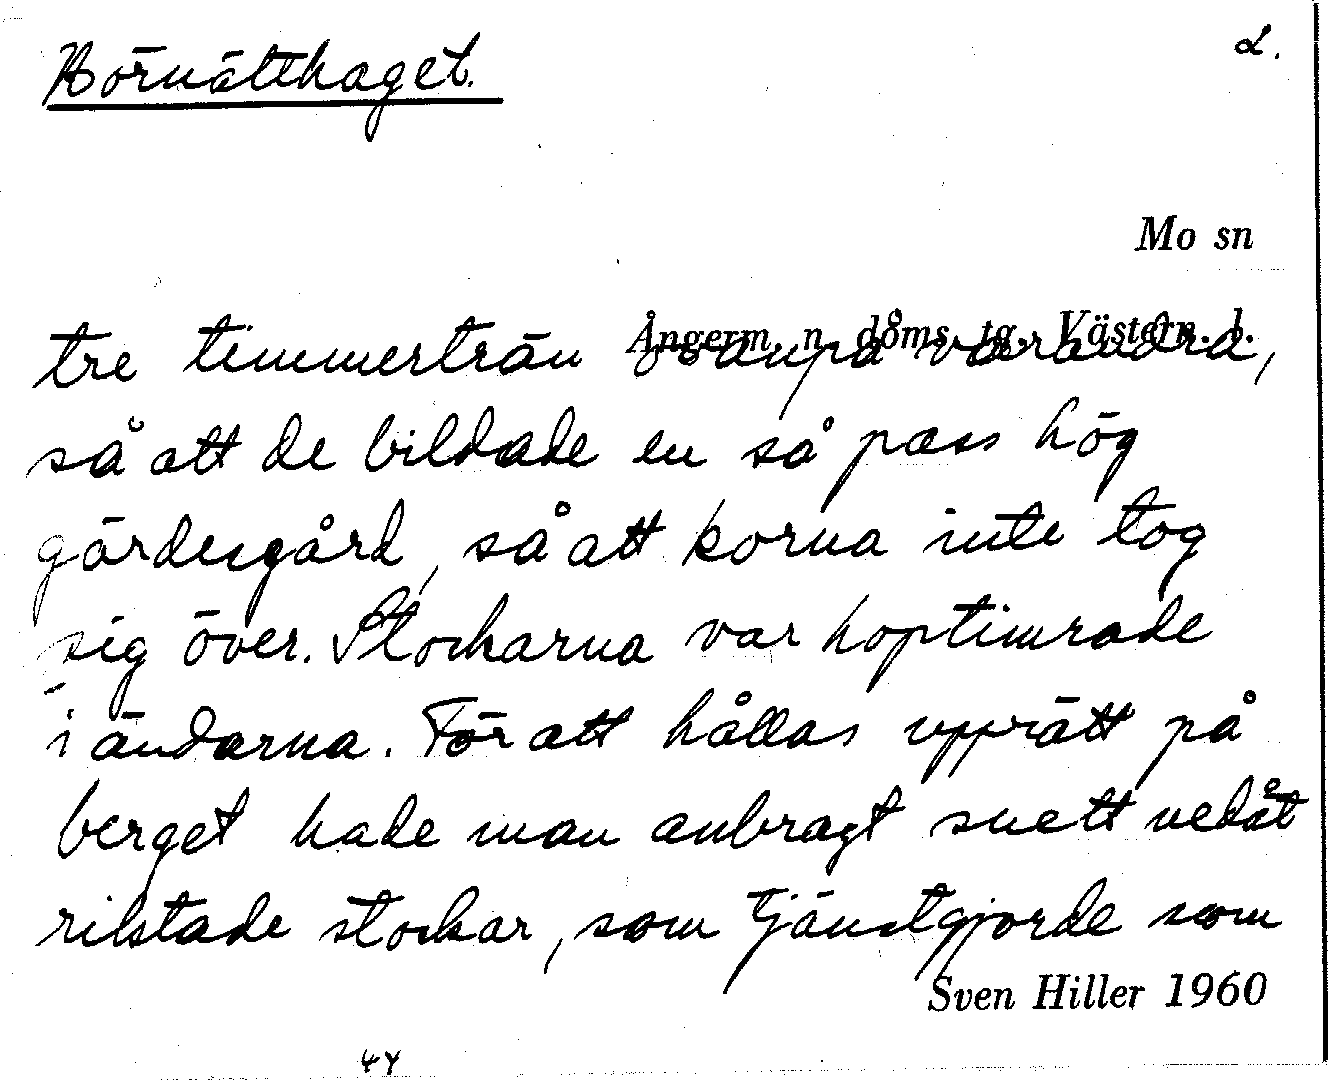 Hörnätthaget.
2.
Mo sn
Ångerm. n. doms. tg. Västern. l.
tre timmerträn ovanpå varandra,
så att de bildade en så pass hög
gärdesgård, så att korna inte tog
sig över. Stockarna var hoptimrade
i ändarna. För att hållas upprätt på
berget hade man anbragt snett nedåt
riktade stockar, som tjänstgjorde som
Sven Hiller 1960